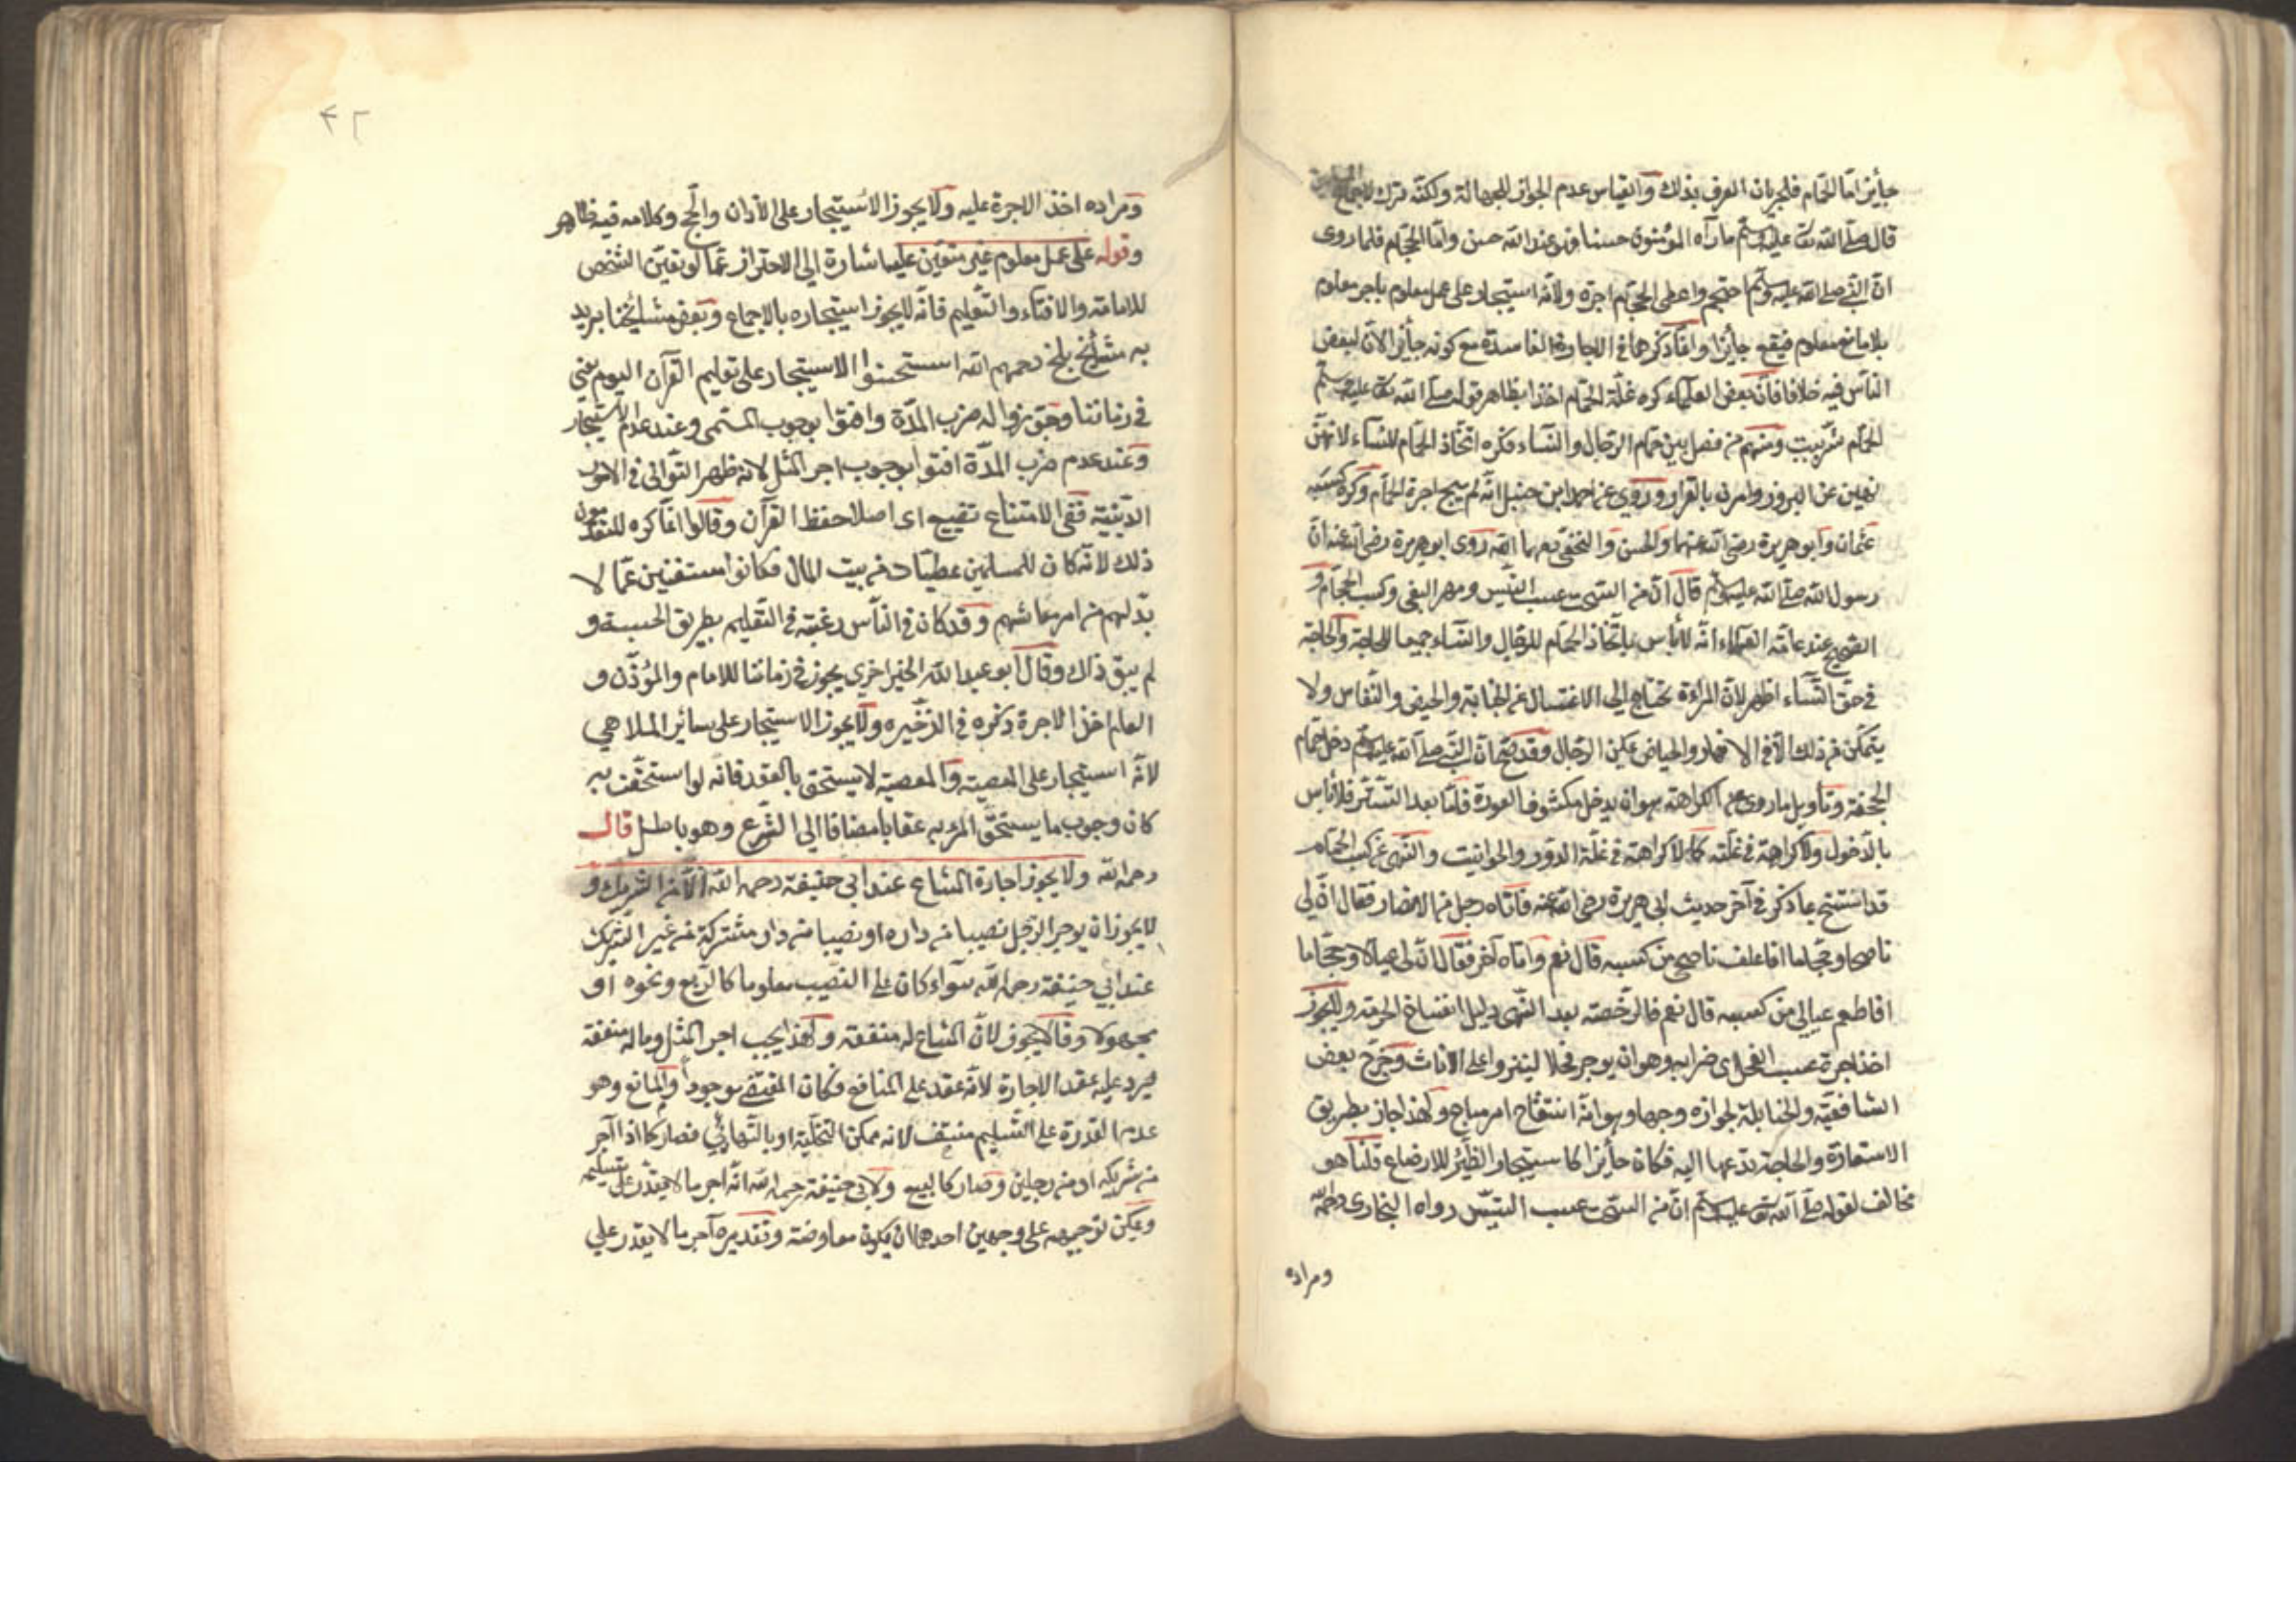 جائز اما الحمام فلجريان العرف بذلك والقياس عدم الجواز للجهالة ولكنه ترك لاجماع
قال صلى الله تعالى عليه وسلم ما رآه المؤمنون حسنا فهو عند الله حسن واما الحجام فلما روى
ان النبي صلى الله عليه وسلم احتجم واعطى الحجام اجرة ولانه استيجار على عمل معلوم باجر معلوم
بلا مانع معلوم فيقع جائزا وانما ذكرهما في الاجارة الفاسدة مع كونه جائزا لان لبعض
الناس فيه خلافا فان بعض العلماء كره غلة الحمام اخذا بظاهر قوله صلى الله تعالى عليه وسلم
الحمام شر بيت ومنهم من فصل بين حمام الرجال والنساء فكره اتخاذ الحمام للنساء لانهن
نهين عن البروز وامرن بالقرار وروي عن احمد ابن حنبل انه لم يبح اجرة الحجام وكره كسبه
عثمان وابو هريرة رضي الله عنهما والحسن والنخعي روى ابو هريرة رضي الله عنه ان
رسول الله صلى الله عليه وسلم قال ان من السحت عسب التيس ومهر البغى وكسب الحجام و
الصحيح عند عامة العلماء انه لا بأس باتخاذ الحمام للرجال والنساء جميعا للحاجة والحاجة
في حق النساء اظهر لان المراءة تحتاج الى الاغتسال عن الجنابة والحيض والنفاس ولا
يتمكن من ذلك الا في الانهار والحياض تمكن الرجال وقد صح ان النبي صلى الله عليه وسلم دخل حمام
الجحفة وتأويل ما روى من الكراهة هو ان يدخل مكشوف العورة فلما بعد التستر فلا بأس
بالدخول ولا كراهة في غلته كما لا كراهة في غلة الدور والحوانيت والنهى عن كسب الحجام
قد انتسخ بما ذكر في آخر حديث ابي هريرة رضي الله عنه فاتاه رجل من الانصار فقال ان لي
ناضحا وحجاما افاعلف ناضحي من كسبه قال نعم واتاه آخر فقال ان لي عيالا وحجاما
افاطعم عيالي من كسبه قال نعم فالرخصة بعد النهى دليل انتساخ الحرمة ولا يجوز
اخذ اجرة عسب الفحل اى ضرابه وهو ان يوجر فحلا لينزو على الاناث وخرج بعض
الشافعية والحنابلة لجوازه وجها وهو انه انتفاع امر مباح ولهذا جاز بطريق
الاستعارة والحاجة تدعها اليه فكان جائزا كاستيجار الظئر للارضاع قلنا هو
مخالف لقوله صلى الله تعالى عليه وسلم ان من السحت عسب التيس رواه البخارى رحمه الله
ومراده
٤٢
ومراده اخذ الاجرة عليه ولا يجوز الاستيجار على الاذان والحج وكلامه فيه ظاهر
وقوله على عمل معلوم غير متعين عليه اشارة الى الاحتراز عما لو تعين الشخص
للامامة والافتاء والتعليم فانه لا يجوز استيجاره بالاجماع وبعض مشايخنا يريد
به مشايخ بلخ رحمهم الله استحسنوا الاستيجار على تعليم القرآن اليوم يعني
في زماننا وجوزوا له ضرب المدة وافتوا بوجوب المسمى وعند عدم الاستيجار
وعند عدم ضرب المدة افتوا بوجوب اجر المثل لانه ظهر التوانى في الامور
الدينية ففي الامتناع تضييع اى اصلا حفظ القرآن وقالوا انما كره المتقدمون
ذلك لانه كان للمسلمين عطيات من بيت المال فكانوا مستغنين عما لا
بد لهم من امر معاشهم وقد كان في الناس رغبة في التعليم بطريق الحسبة و
لم يبق ذلك وقال ابو عبد الله الخيزاخزى يجوز في زماننا للامام والموذن و
العلم اخذ الاجرة ذكره في الذخيره ولا يجوز الاستيجار على سائر الملاهي
لانه استيجار على المعصية والمعصية لا يستحق بالعقد فانه لو استحقت به
كان وجوب ما يستحق المرء به عقابا مضافا الى الشرع وهو باطل قال
رحمه الله ولا يجوز اجارة المشاع عند ابي حنيفة رحمه الله الا من الشريك و
لا يجوز ان يوجر الرجل نصيبا من داره او نصيبا من دار مشتركة من غير الشريك
عند ابي حنيفة رحمه الله سواء كان على النصيب معلوما كالربع ونحوه او
مجهولا وقالا يجوز لان المشاع له منفعة ولهذا يجب اجر المثل وماله منفعة
فيرد عليه عقد الاجارة لانه عقد على المنافع فكان المقتضى موجودا والمانع وهو
عدم القدرة على التسليم منتف لانه ممكن بالتخلية او بالتهائي فصار كما اذا آجر
من شريكه او من رجلين وصار كالبيع ولابي حنيفة رحمه الله انه اجر ما لا يقدر على تسليمه
ويمكن توجيهه على وجهين احدهما ان يكون معاوضة وتقديره آجر ما لا يقدر على